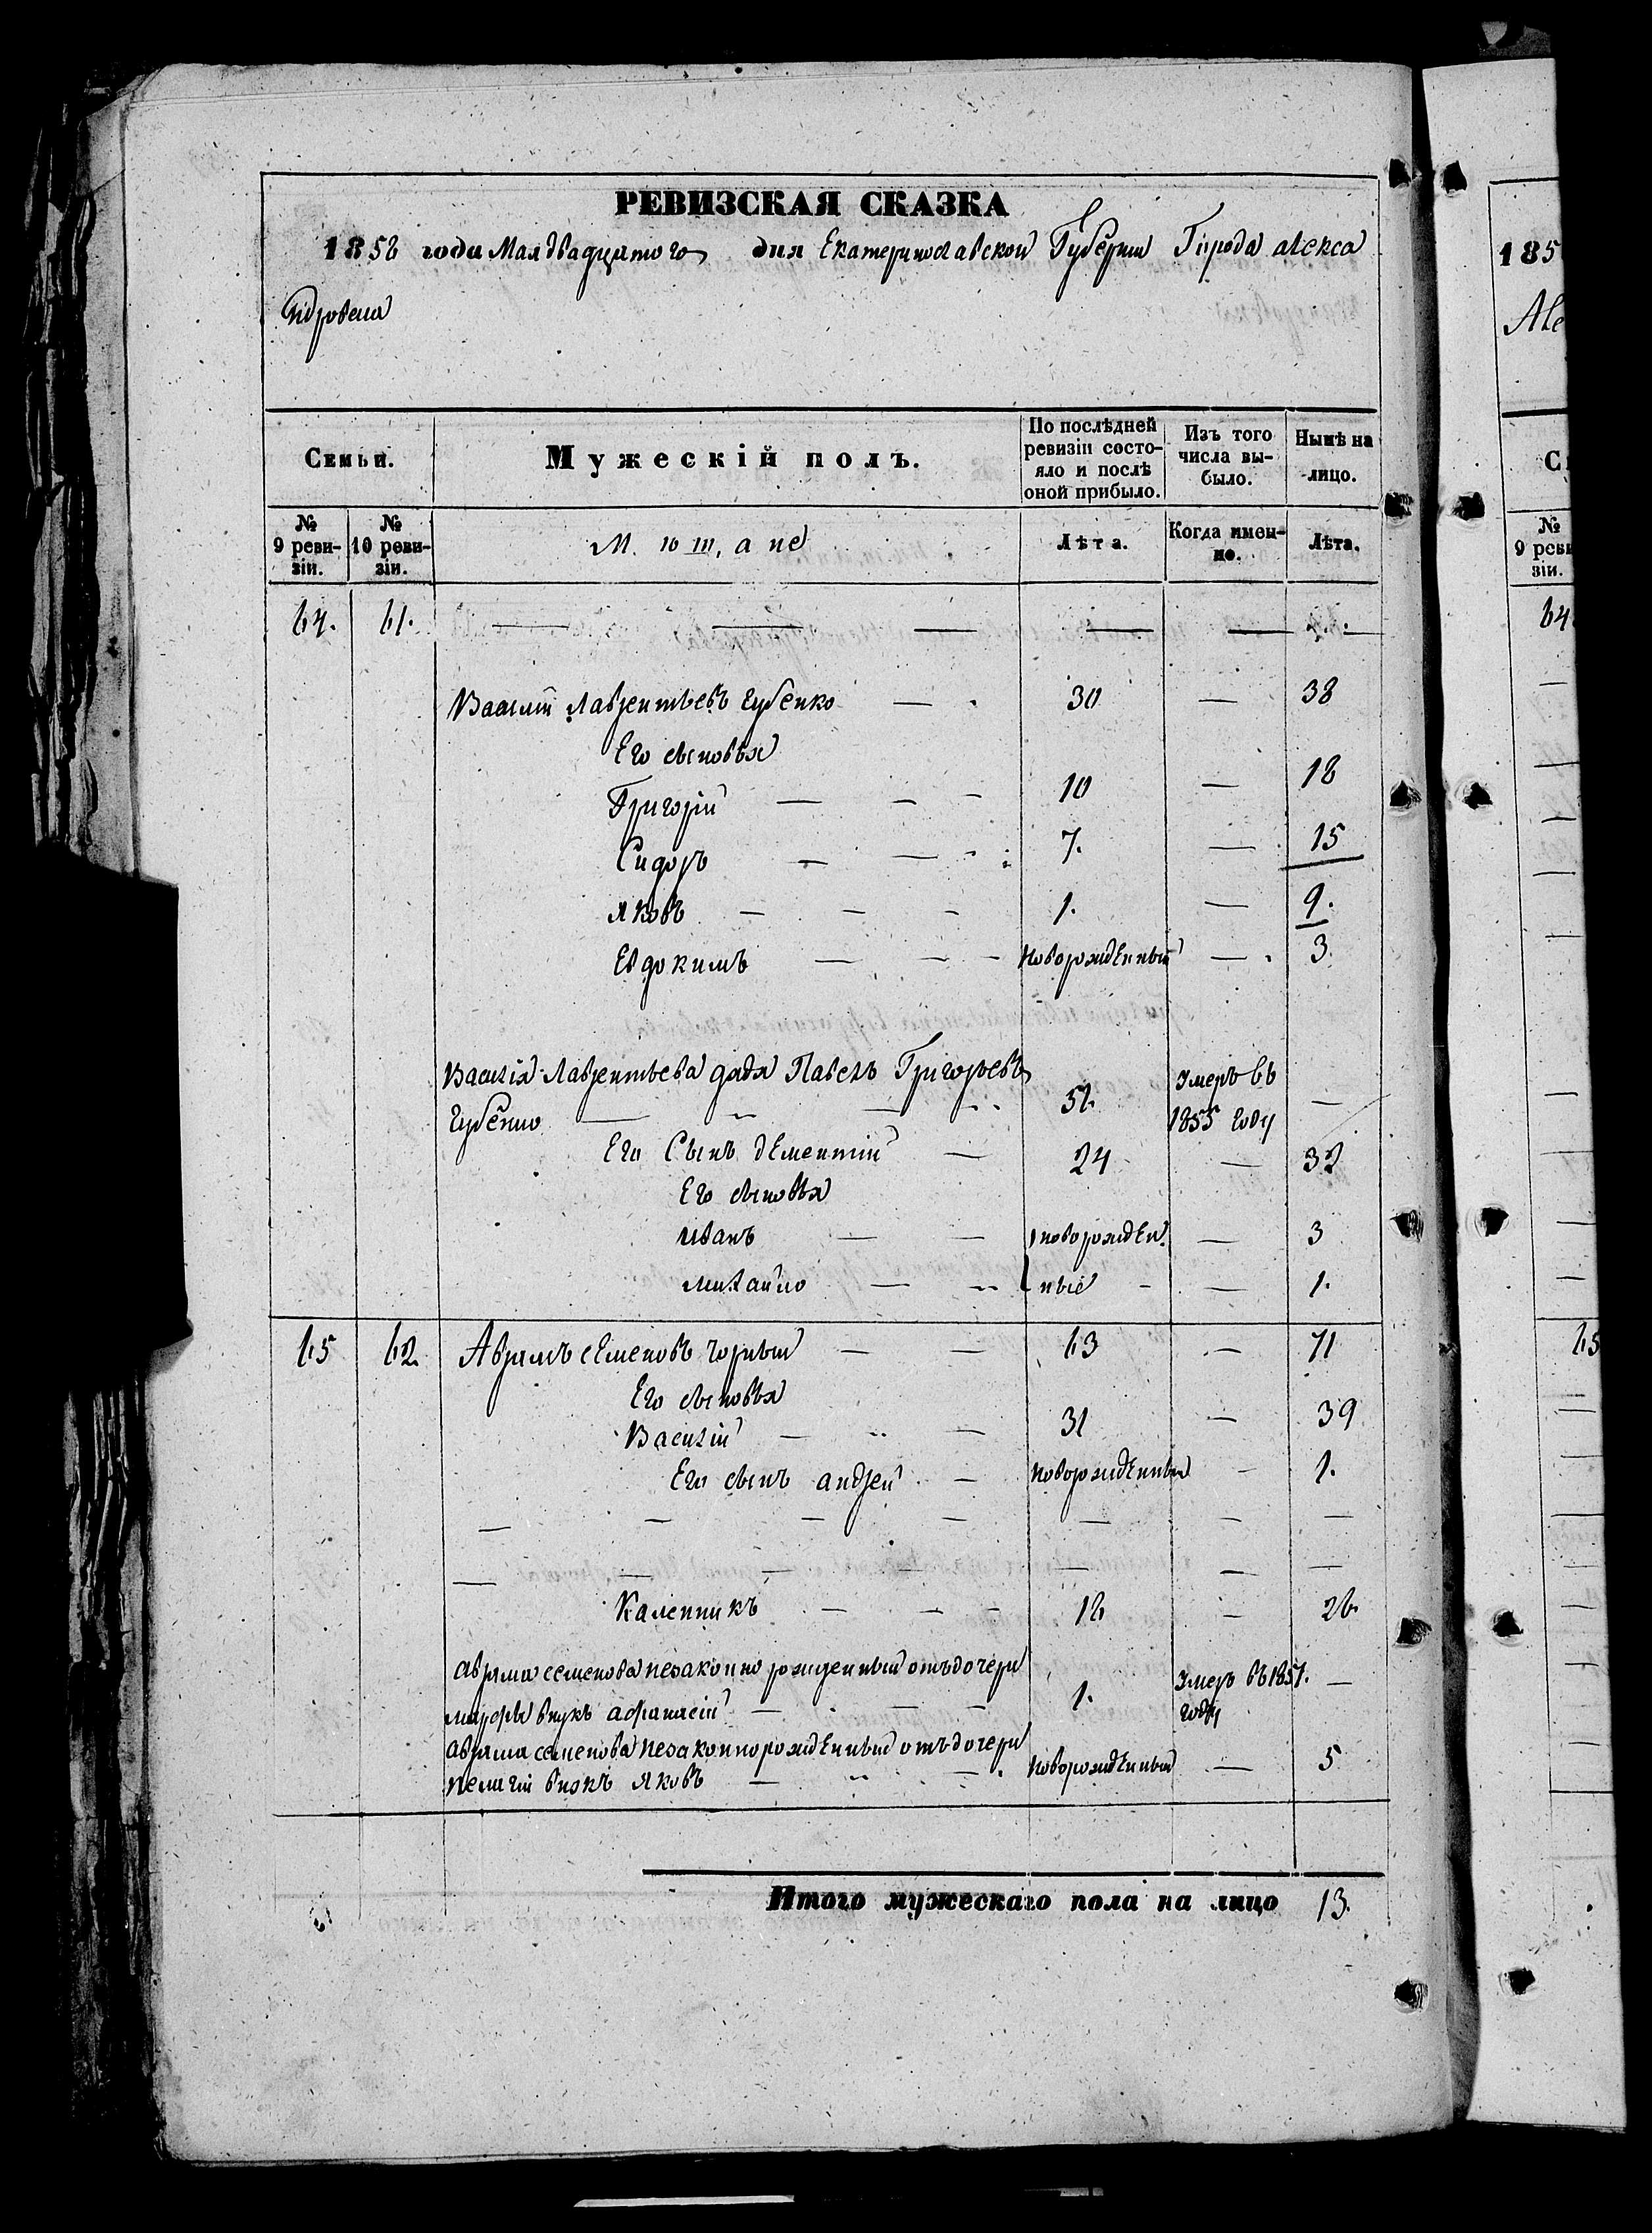 РЕВИЗСКАЯ СКАЗКА
1858 года Мая двадцятого дня Екатеринославской Губернии Города алекса
ндровска
Семьи.
Мужескій полъ.
По послѣдней ревизіи состояло и послѣ оной прибыло.
Изъ того числа выбыло.
Нынѣ на лицо.
№ 9 ревизіи.
№ 10 ревизіи.
М. ю щ, а не
Лѣта.
Когда именно.
Лѣта.
64. 61. — — — — — —
Василій Лаврентьевъ Губенко — 30 — 38
Его сыновья
Григорій — — — 10 — 18
Сидоръ — — 7. — 15
Яковъ — — — 1. — 9.
Евдокимъ — — — Новорожденный — 3.
Василія Лаврентьева дядя Павелъ Григорьевъ
Губенко — — 51. Умеръ въ 1855 году —
Его Сынъ дементій — 24 — 32
Его сыновья
иванъ — — новорожден — 3
михайло — ные — — 1.
65 62. Аврамъ семеновъ чорный — — 63 — 71
Его сыновья
Василій — — 31 — 39
Его сынъ андрей — новорожденный — 1.
— — — — — — —
— — — — — — —
Каленикъ — — — 18 — 26.
аврама семенова незаконно рожденный отъ дочери
марфы внукъ афанасій — — — 1. Умеръ въ 1857. году —
аврама семенова незаконнорожденный отъ дочери
пелагіи внукъ яковъ — — новорожденный — 5
Итого мужескаго пола на лицо 13.
185
Але
С
№
9 реви
зіи.
64
65